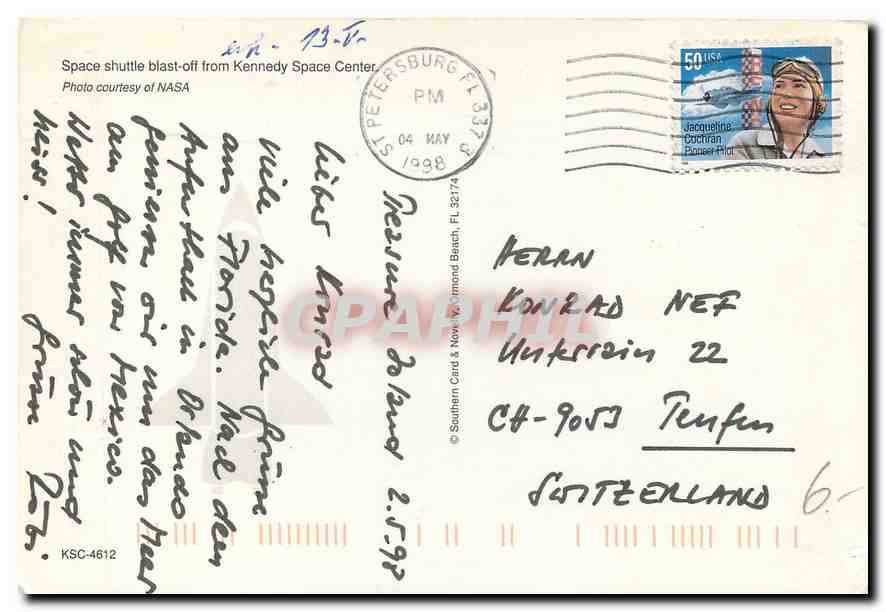 erh. 13-V-
Space shuttle blast-off from Kennedy Space Center
Photo courtesy of NASA
ST PETERSBURG FL 337 3
PM
04 MAY
1998
50 USA
Jacqueline
Cochran
Pioneer Pilot
Treasure Island 2.5.98
Lieber Konrad
viele herzliche Grüsse
aus Florida. Nach dem
Aufenthalt in Orlando
geniessen wir nun das Meer
am Golf von Mexico.
Wetter immer schön und
heiss!
Grüsse
© Southern Card & Novelty, Ormond Beach, FL 32174
HERRN
KONRAD NEF
Unterrain 22
CH-9053 Teufen
SWITZERLAND
6.-
CPAPHIL
KSC-4612